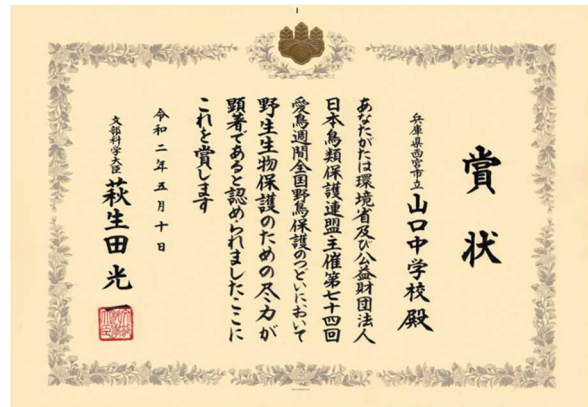 賞状
兵庫県西宮市立山口中学校殿
あなたがたは環境省及び公益財団法人
日本鳥類保護連盟主催第七十四回
愛鳥週間全国野鳥保護のつどいにおいて
野生生物保護のための尽力が
顕著であると認められましたここに
これを賞します
令和二年五月十日
文部科学大臣萩生田光